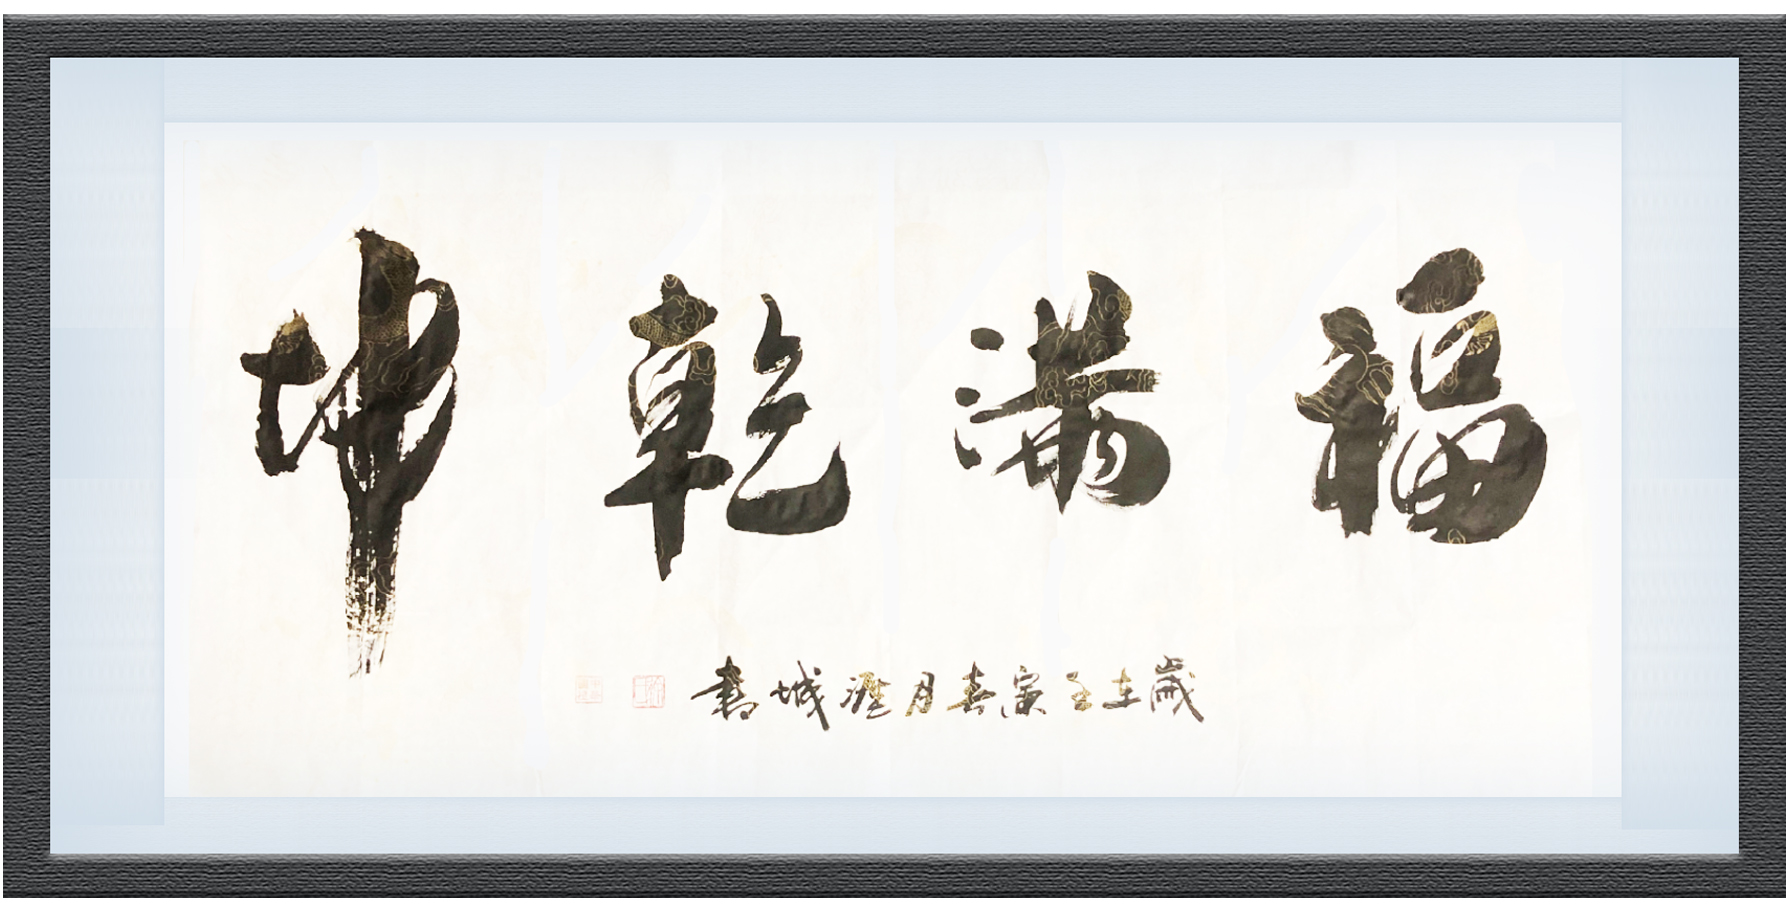 福滿乾坤
歲在壬寅春月城書